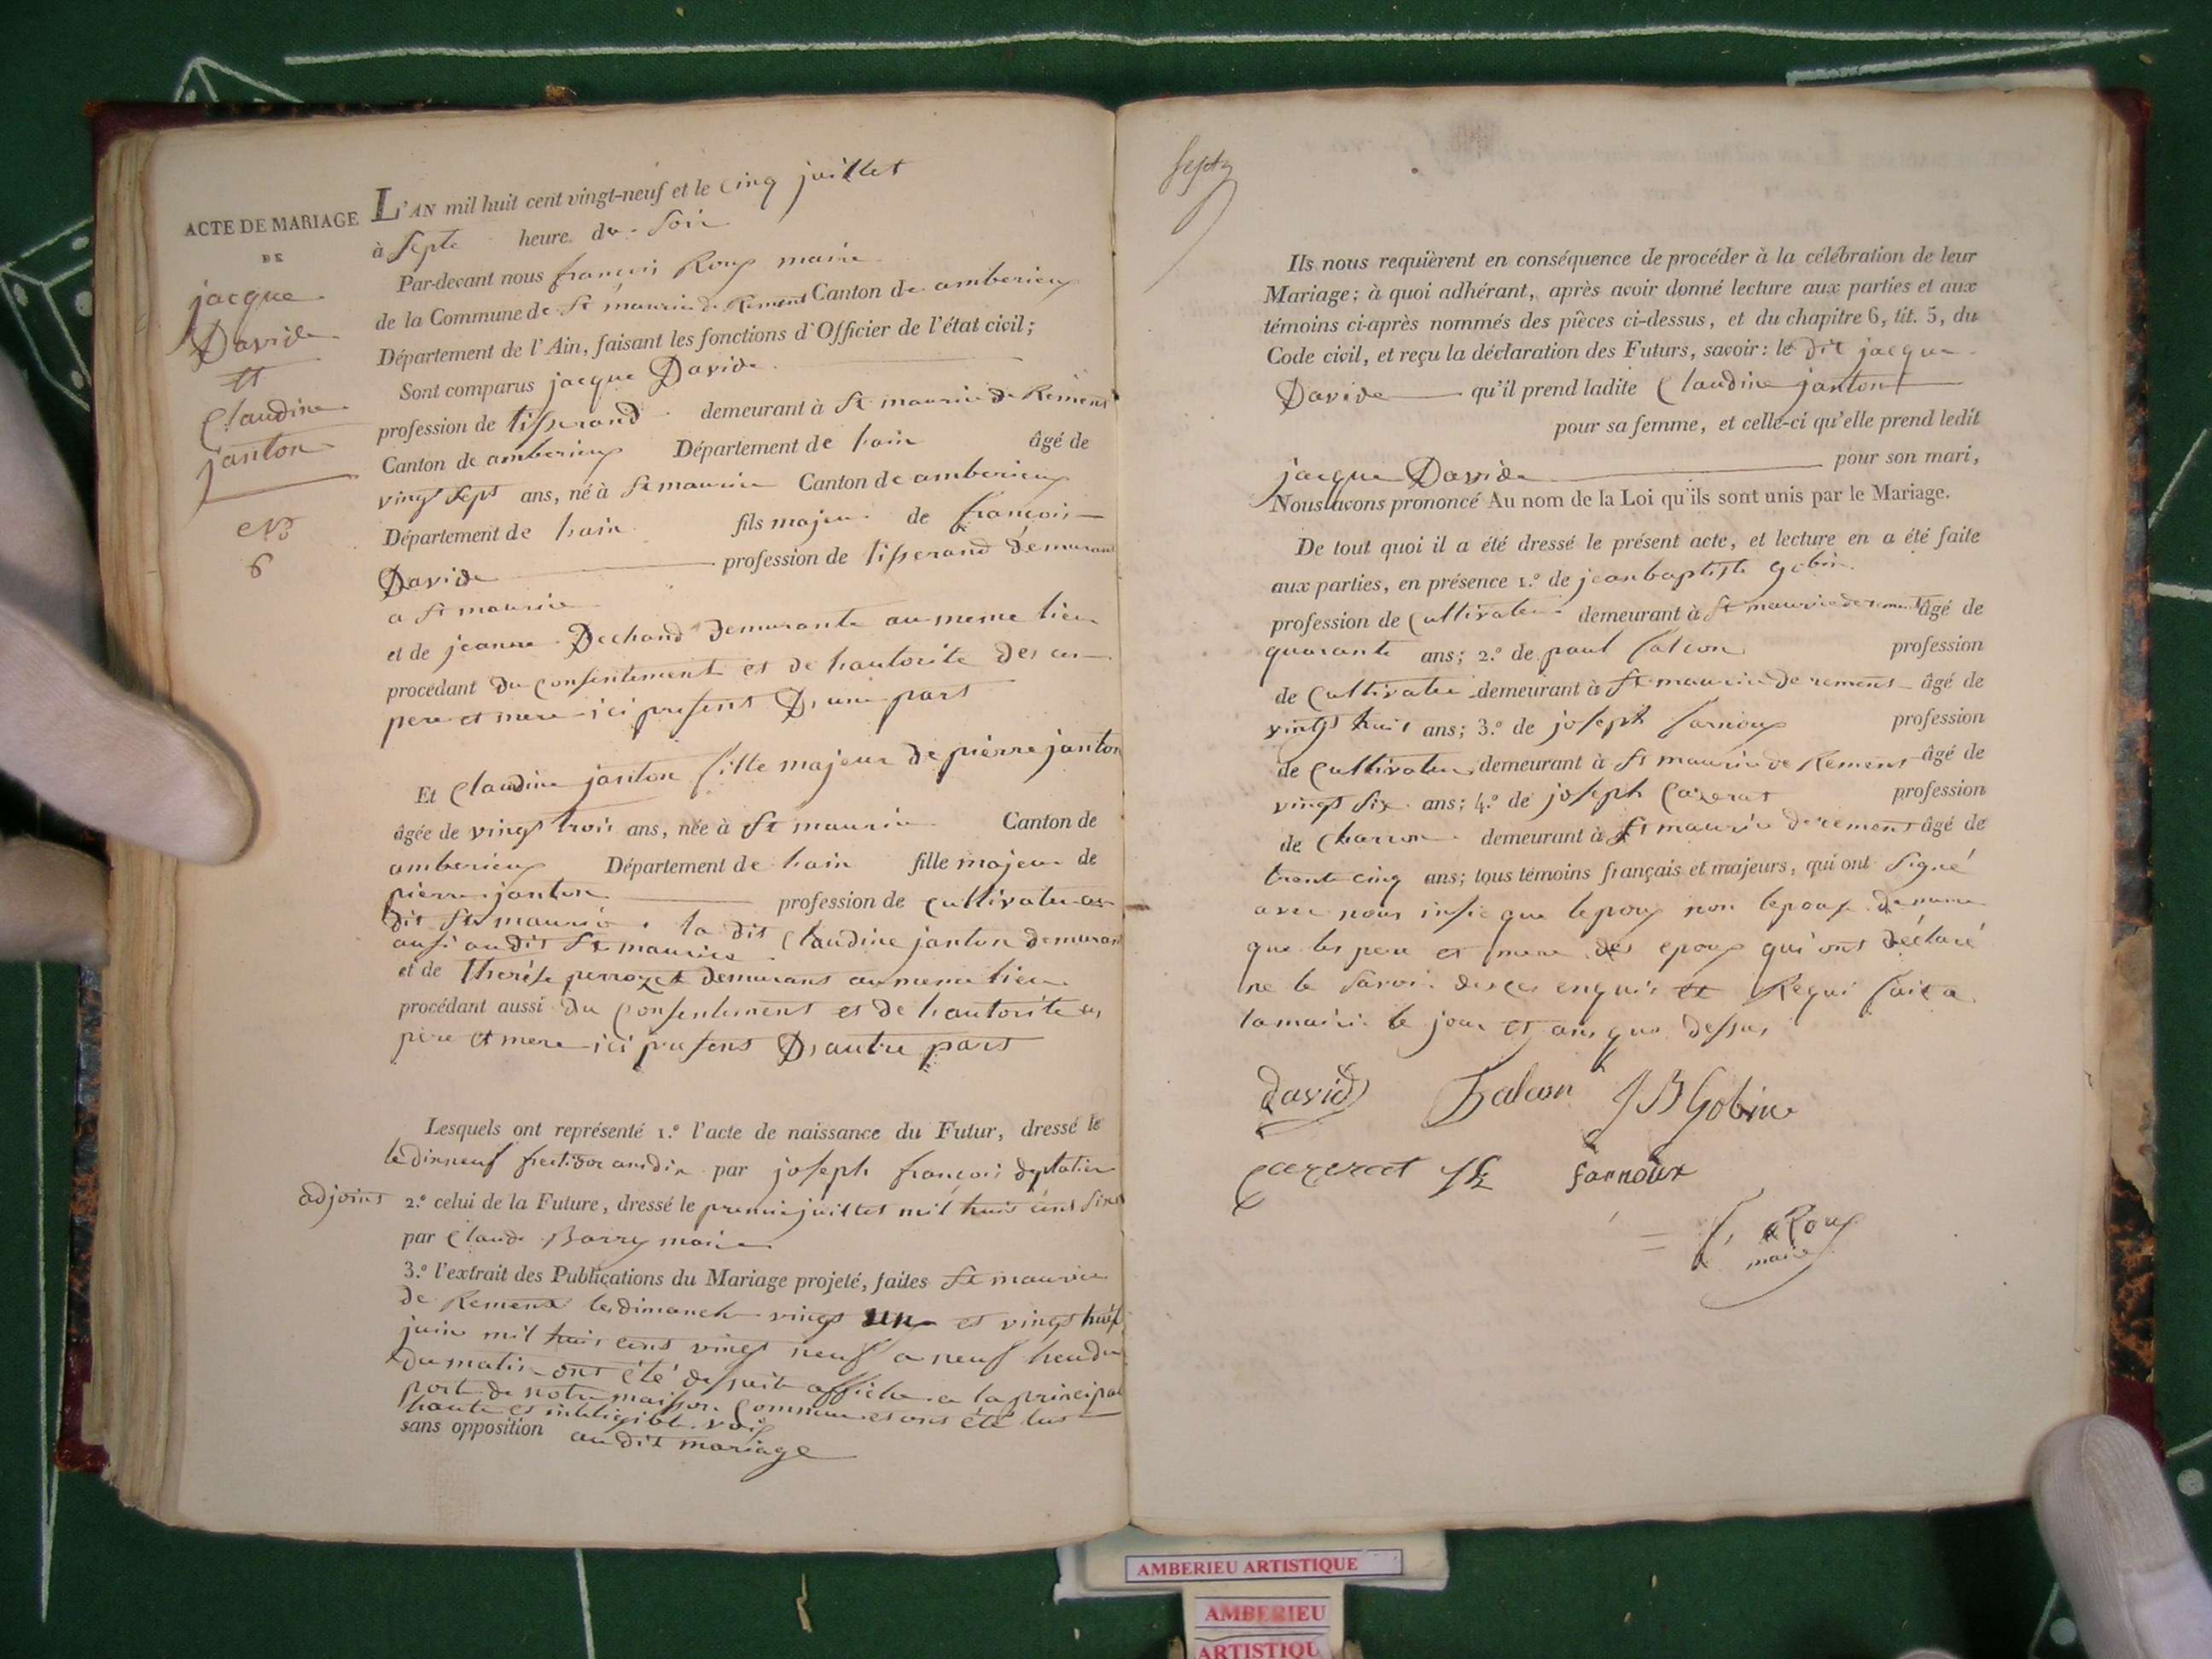 ACTE DE MARIAGE
DE
jacque
Davide
et
Claudine
janton
N°
6
L'AN mil huit cent vingt-neuf et le cinq juillet
à septe heure du soir
Par-devant nous françois Roux maire
de la Commune de St maurice de Rémens Canton de amberieux
Département de l'Ain, faisant les fonctions d'Officier de l'état civil;
Sont comparus jacque Davide
profession de tisserand demeurant à St maurice de Rémens
Canton de amberieux Département de hain âgé de
vingt sept ans, né à St maurice Canton de amberieux
Département de hain fils majeur de françois
Davide profession de tisserand demurant
a St maurice
et de jeanne Dechand demurante au meme lieu
procédant du consentement et de hautorite des ces
pere et mere ici present D'une part
Et Claudine janton fille majeur de pierre janton
âgée de vingt trois ans, née à St maurice Canton de
amberieux Département de hain fille majeur de
pierre janton profession de cultivateur au
dit St maurice la dit Claudine janton demurant
ausi audit St maurice
et de Therèse perrozet demurans au meme lieu
procédant aussi du consentement et de hautorite ses
père et mere ici presens D'autre part
Lesquels ont représenté 1.° l'acte de naissance du Futur, dressé le
le dixneuf an dix par joseph françois
adjoint 2.° celui de la Future, dressé le premier juillet mil huit cens six
par Claude Barry maire
3.° l'extrait des Publications du Mariage projeté, faites St maurice
de Remens les dimanche vingt un et vingt huit
juin mil huit cens vingt neuf a neuf heur du
du matin ont été de suite affiche a la principal
porte de notre maison commune et ons été lus
haute et inteligible voix
sans opposition au dit mariage
Ils nous requièrent en conséquence de procéder à la célébration de leur
Mariage; à quoi adhérant, après avoir donné lecture aux parties et aux
témoins ci-après nommés des pièces ci-dessus, et du chapitre 6, tit. 5, du
Code civil, et reçu la déclaration des Futurs, savoir: le dit jacque
Davide qu'il prend ladite Claudine janton
pour sa femme, et celle-ci qu'elle prend ledit
jacque Davide pour son mari,
Nous avons prononcé Au nom de la Loi qu'ils sont unis par le Mariage.
De tout quoi il a été dressé le présent acte, et lecture en a été faite
aux parties, en présence 1.° de jean baptiste gobin
profession de Cultivateur demeurant à St maurice de remens âgé de
quarante ans; 2.° de paul falcon profession
de Cultivateur demeurant à St maurice de remens âgé de
vingt huit ans; 3.° de joseph farnoux profession
de Cultivateur demeurant à St maurice de Remens âgé de
vingt six ans; 4.° de joseph Cozerat profession
de Charron demeurant à St maurice de remens âgé de
trente cinq ans; tous témoins français et majeurs, qui ont signé
avec nous que lepoux non lepouse de meme
que les pere et mere des epoux qui ons déclaré
ne le savoir de ces enquis et Requi fait a
la mairie le jour et an que dessus
david Falcon JB Gobin
cozerat farnoux
f, Roux
maire
AMBERIEU ARTISTIQUE
AMBERIEU
ARTISTIQU